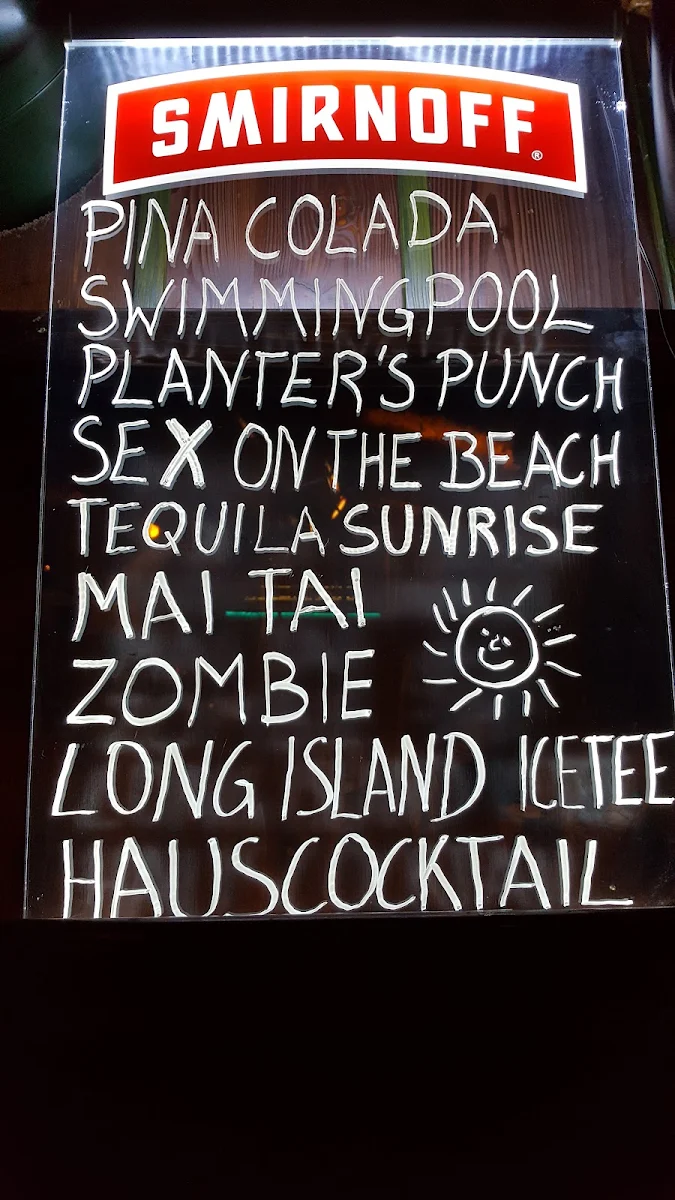 SMIRNOFF®
PINA COLADA
SWIMMINGPOOL
PLANTER'S PUNCH
SEX ON THE BEACH
TEQUILA SUNRISE
MAI TAI
ZOMBIE
LONG ISLAND ICETEE
HAUSCOCKTAIL